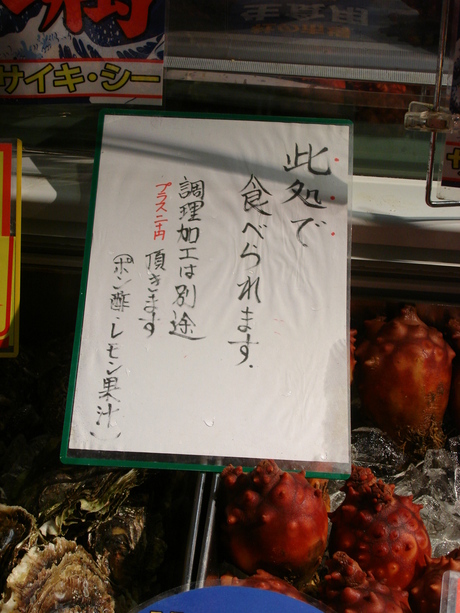 サイキ・シー
此処で
食べられます.
調理加工は別途
プラス二十円
頂きます
(ポン酢・レモン果汁)